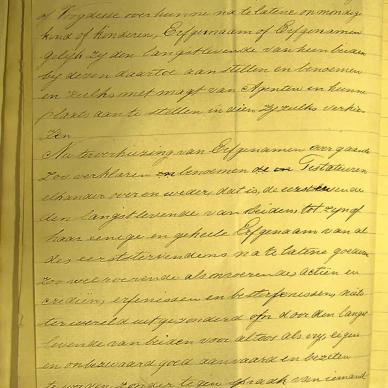 of Voogdesse over hunne na te latene onmondige
kind of kinderen, Erfgenaam of Erfgenamen
gelijk zij den langstlevende van hen beiden
bij dezen daartoe aanstellen en benoemen
en zulks met magt van Agenten en hunne
plaats aan te stellen indien zij zulks verkie
zen
Nu ter verkiezing van Erfgenamen overgaande
Zoo verklaren benoemen de Testateuren
elkander over en weder, dat is, de eerstervende
den langstlevende van beiden tot zijn of
haar eenige en geheele Erfgenaam van al
des eerststervendens na te latene goederen
zoo wel roerende als onroerende, actiën en
crediten, erfenissen en besterfenissen, niets
ter wereld uitgezonderd om door den langst
levende van beiden voor altoos als vrij, eigen
en onbezwaard goed aanvaard en bezeten
te worden, zonder tegenspraak van iemand